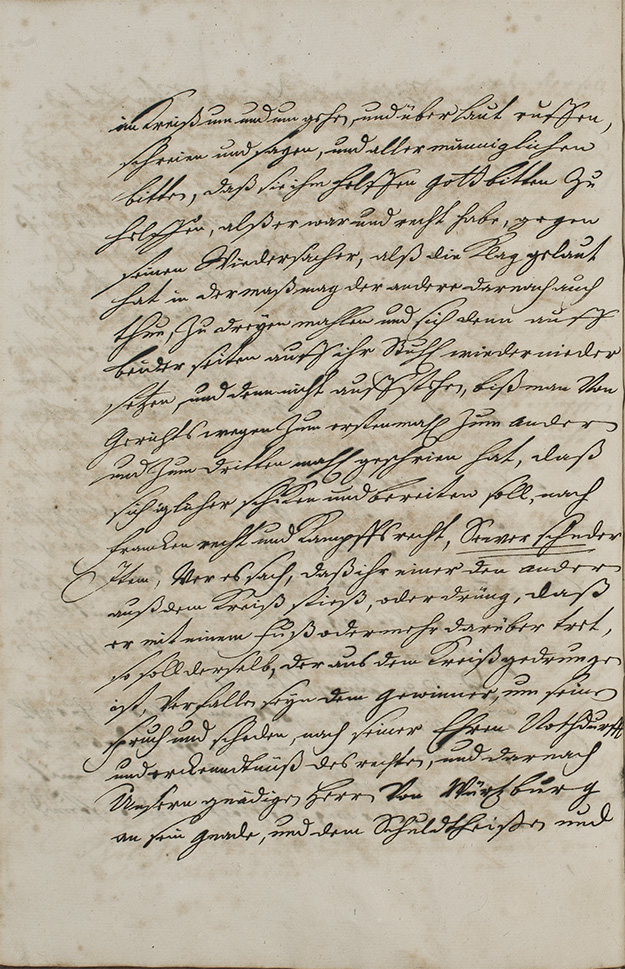 im Kreiß um und um gehen, und über laut ruffen,
schreien und sagen, und aller männiglichen
bitten, daß sie ihm helffen Gott bitten Zu
helffen, alß er war und recht habe, gegen
seinen Wiedersacher, alß die Klag gelaut
hat in dermaß mag der andere darnach auch
thun, Zu dreyen mahlen und sich denn auff
beider seiten auff ihr Stuhl wieder nieder
setzen, und denn nicht auffstehen, biß man Von
Gerichts wegen Zum erstenmahl Zum andern
und Zum dritten mahl geschrien hat, daß
sich iglicher schicken und bereiten soll, nach
francken recht und Kampffsrecht,
Item, Wer es sach, daß ihr einer den andern
auß dem Kreiß stieß, oder drüng, daß
er mit einem fuß oder mehr darüber tret,
so soll derselb, der aus dem Kreiß gedrungen
ist, Verfallen seyn dem Gewinner, um seine
spruch und scheden, nach seiner Ehren Nothdurfft
und erkenndtnüß des rechten, und darnach
Unsern gnädigen Herrn Von Würtzburg
an sein gnade, und dem Schuldtheißen und